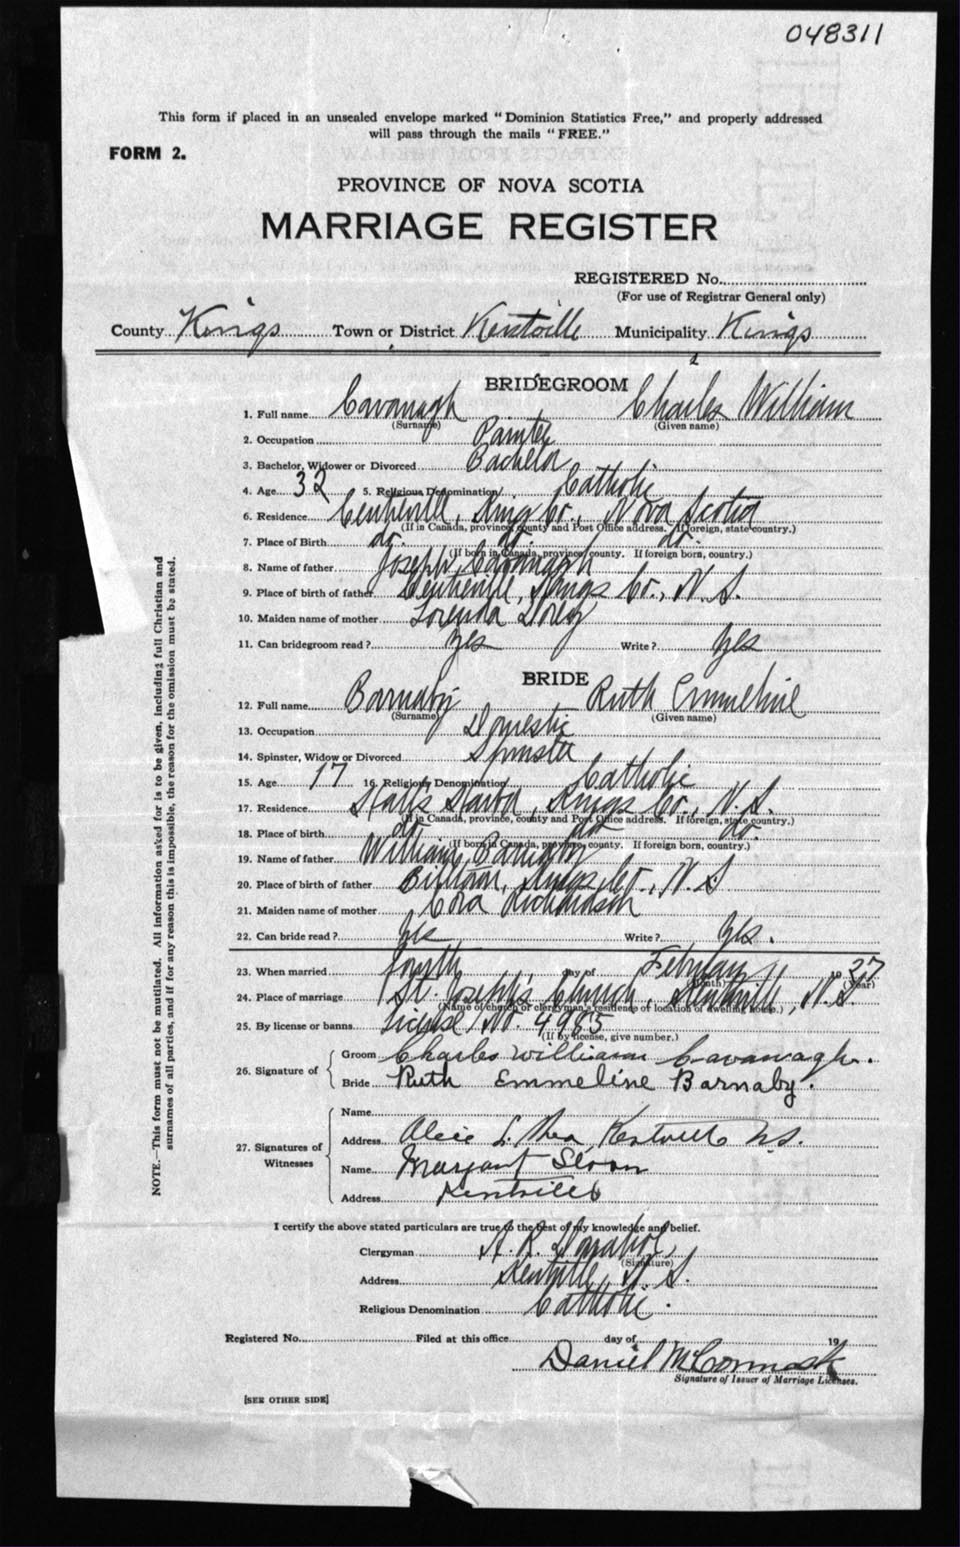 048311
This form if placed in an unsealed envelope marked "Dominion Statistics Free," and properly addressed
will pass through the mails "FREE."
FORM 2.
PROVINCE OF NOVA SCOTIA
MARRIAGE REGISTER
REGISTERED No.
(For use of Registrar General only)
County Kings Town or District Kentville Municipality Kings
BRIDEGROOM
1. Full name Cavanagh Charles William
(Surname) (Given name)
2. Occupation Painter
3. Bachelor, Widower or Divorced Bachelor
4. Age 32 5. Religious Denomination Catholic
6. Residence Centreville, Kings Co., Nova Scotia
(If in Canada, province, county and Post Office address. If foreign, state country.)
7. Place of Birth do. do. do.
(If born in Canada, province, county. If foreign born, country.)
8. Name of father Joseph Cavanagh
9. Place of birth of father Centreville, Kings Co., N.S.
10. Maiden name of mother Lorenda
11. Can bridegroom read? Yes Write? Yes
BRIDE
12. Full name Barnaby Ruth Emmeline
(Surname) (Given name)
13. Occupation Domestic
14. Spinster, Widow or Divorced Spinster
15. Age 17 16. Religious Denomination Catholic
17. Residence Halls Harbor, Kings Co., N.S.
(If in Canada, province, county and Post Office address. If foreign, state country.)
18. Place of birth do do do.
(If born in Canada, province, county. If foreign born, country.)
19. Name of father William Barnaby
20. Place of birth of father Billtown, Kings Co., N.S
21. Maiden name of mother Cora Richardson
22. Can bride read? Yes Write? Yes.
23. When married fourth day of February 1927
(Month) (Year)
24. Place of marriage St. Joseph's Church, Kentville, N.S
(Name of church or clergyman's residence or location of dwelling house.)
25. By license or banns License No. 4985
(If by license, give number.)
26. Signature of
Groom Charles William Cavanagh.
Bride Ruth Emmeline Barnaby.
27. Signatures of Witnesses
Name
Address Alice L. Rhea Kentville N.S.
Name Margaret Sloan
Address Kentville
I certify the above stated particulars are true to the best of my knowledge and belief.
Clergyman A. R. Donahoe,
(Signature)
Address Kentville, N.S.
Religious Denomination Catholic.
Registered No. Filed at this office day of 19
Daniel McCormack
Signature of Issuer of Marriage Licenses.
[SEE OTHER SIDE]
NOTE.—This form must not be mutilated. All information asked for is to be given, including full Christian and
surnames of all parties, and if for any reason this is impossible, the reason for the omission must be stated.